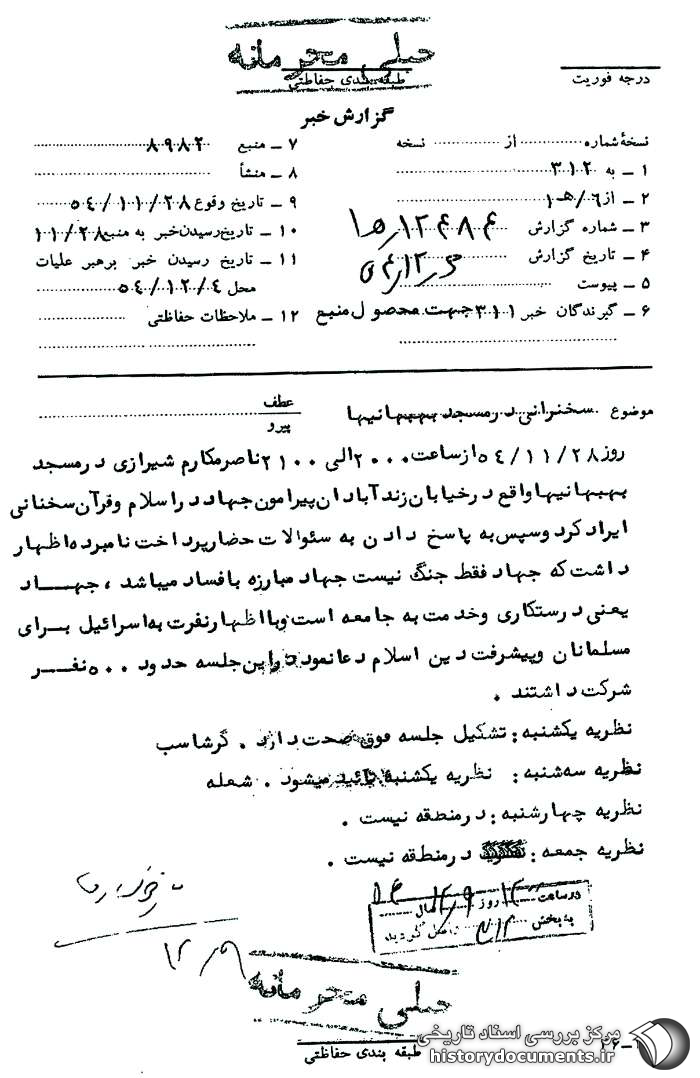 خیلی محرمانه
طبقه بندی حفاظتی
درجه فوریت
گزارش خبر
نسخهٔ شماره از نسخه
۱ ـ به ۳۱۲
۲ ـ از ۶/هـ۱
۳ ـ شماره گزارش ۱۵/۱۲۴۸۴
۴ ـ تاریخ گزارش
۵ ـ پیوست
۶ ـ گیرندگان خبر ۳۱۱ جهت محصول منبع
۷ ـ منبع ۸۹۸۲
۸ ـ منشأ
۹ ـ تاریخ وقوع ۵۴/۱۱/۲۸
۱۰ ـ تاریخ رسیدن خبر به منبع ۱۱/۲۸
۱۱ ـ تاریخ رسیدن خبر برهبر علیات
محل ۵۴/۱۲/۴
۱۲ ـ ملاحظات حفاظتی
موضوع سخنرانی در مسجد بهبهانیها
عطف
پیرو
روز ۵۴/۱۱/۲۸ از ساعت ۲۰۰۰ الی ۲۱۰۰ ناصر مکارم شیرازی در مسجد
بهبهانیها واقع در خیابان زند آبادان پیرامون جهاد در اسلام و قرآن سخنانی
ایراد کرد و سپس به پاسخ دادن به سئوالات حضار پرداخت نامبرده اظهار
داشت که جهاد فقط جنگ نیست جهاد مبارزه با فساد میباشد ، جهاد
یعنی درستکاری و خدمت به جامعه است و با اظهار نفرت به اسرائیل برای
مسلمانان و پیشرفت دین اسلام دعا نمود در این جلسه حدود ۵۰۰ نفر
شرکت داشتند .
نظریه یکشنبه : تشکیل جلسه فوق صحت دارد . گرشاسب
نظریه سه شنبه : نظریه یکشنبه تائید میشود . شعله
نظریه چهارشنبه : در منطقه نیست .
نظریه جمعه : در منطقه نیست .
در ساعت روز سال
به بخش ۳۱۲ واصل گردید
۱۲/۹
خیلی محرمانه
طبقه بندی حفاظتی
مرکز بررسی اسناد تاریخی
historydocuments.ir